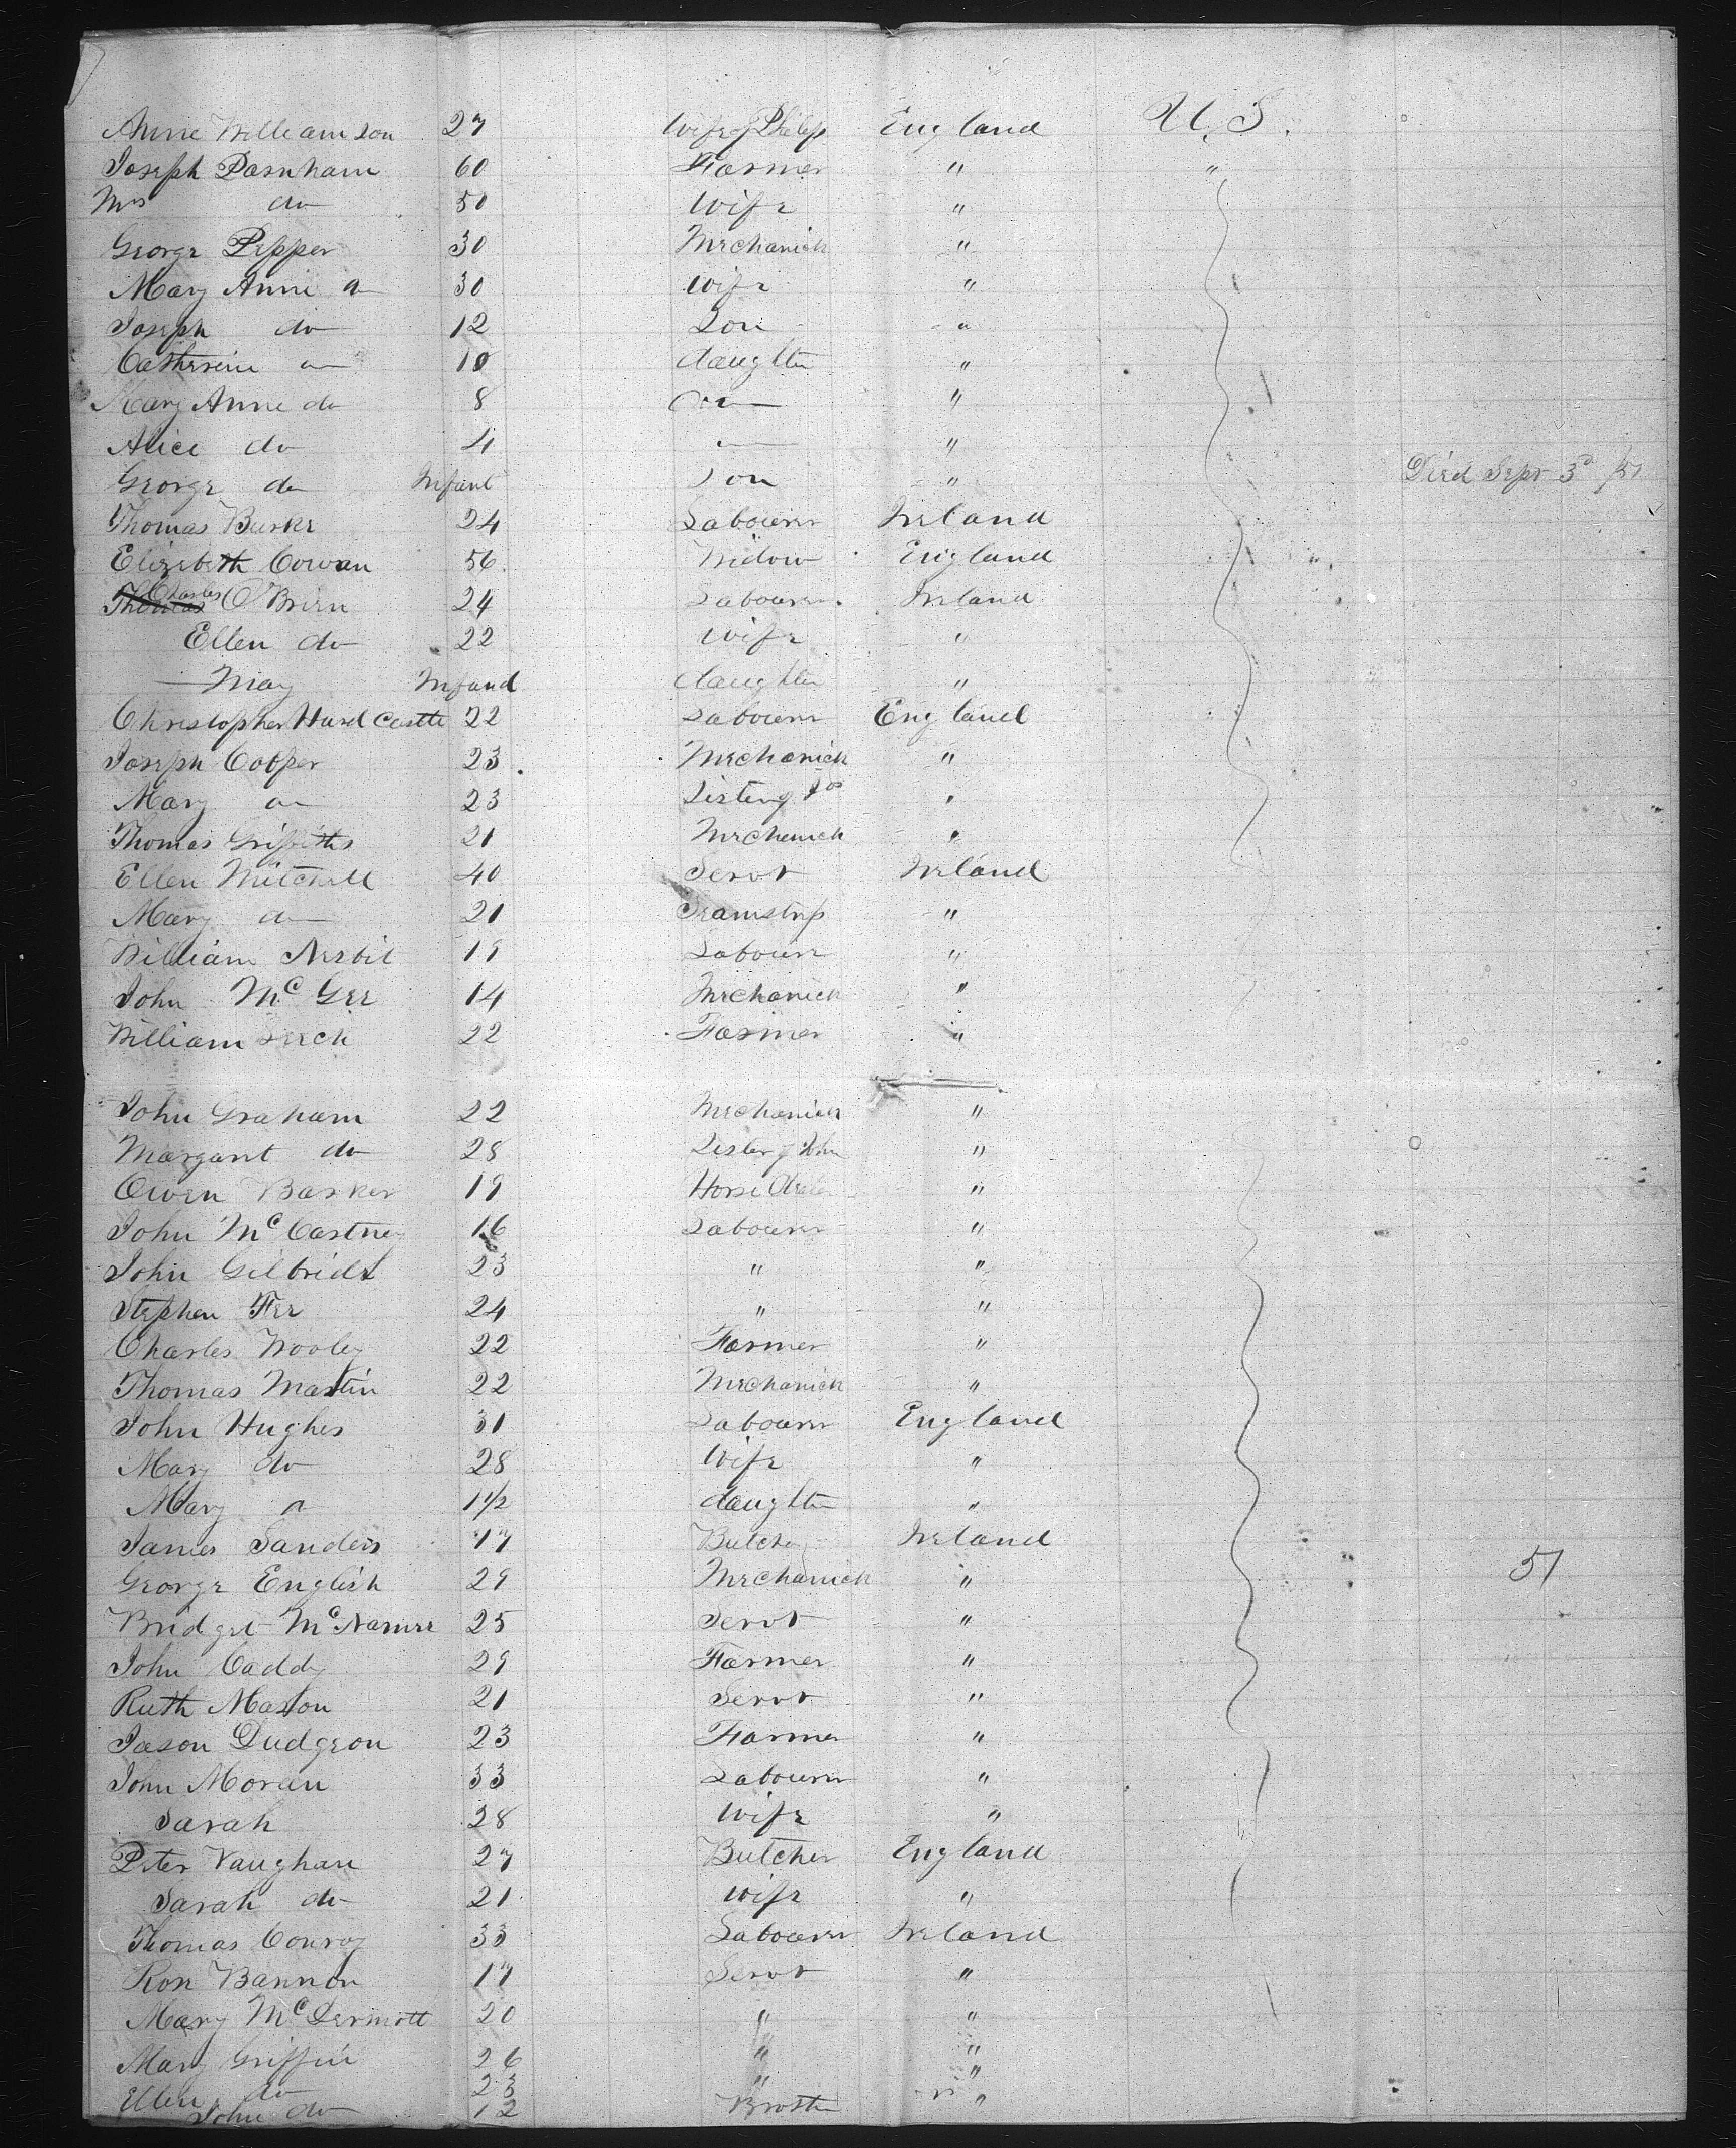 Anne Williamson 27 Wife of Philip England U.S.
Joseph Parnham 60 Farmer " "
Mrs do 50 Wife "
George Pepper 30 Mechanick "
Mary Anne do 30 Wife "
Joseph do 12 Son "
Catherine do 10 daughter "
Mary Anne do 8 do "
Alice do 4 "
George do Infant Son " Died Sept 3d /51
Thomas Burke 24 Labourer Ireland
Elizebeth Cowan 56 Widow England
Charles O'Brien 24 Labourer Ireland
Ellen do 22 Wife "
Mary Infand daughter "
Christopher Hard Castle 22 Labourer England
Joseph Cooper 23 Mechanick "
Mary do 23 Sister of Jos "
Thomas Griffiths 21 Mechanick "
Ellen Mitchell 40 Servt Ireland
Mary do 21 Seamstrss "
William Nesbit 19 Labourer "
John McGee 14 Mechanick "
William 22 Farmer "
John Graham 22 Mechanick "
Margaret do 28 Sister of John "
Owen Barker 19 Horse Dealer "
John McCartney 16 Labourer "
John Gilbride 23 " "
Stephen Fee 24 " "
Charles Wooley 22 Farmer "
Thomas Martin 22 Mechanick "
John Hughes 31 Labourer England
Mary do 28 Wife "
Mary do 1 1/2 daughter "
James Sanders 17 Butcher Ireland
George English 29 Mechanick " 51
Bridget McNamee 25 Servt "
John Caddy 29 Farmer "
Ruth Maston 21 Servt "
Jason Dudgeon 23 Farmer "
John Moran 33 Labourer "
Sarah 28 Wife "
Peter Vaughan 27 Butcher England
Sarah do 21 Wife "
Thomas Conroy 33 Labourer Ireland
Rose Bannon 17 Servt "
Mary McDermott 20 " "
Mary Griffin 26 " "
Ellen do 23 " "
John do 12 Brother "